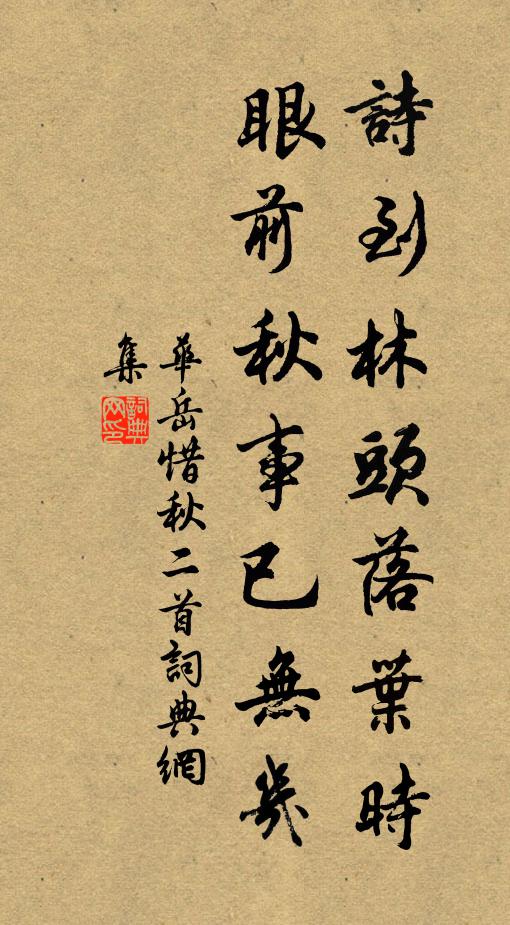 詩到林頭落葉時
眼前秋事已無幾
華岳惜秋二首詞典網
集
詞典
网印